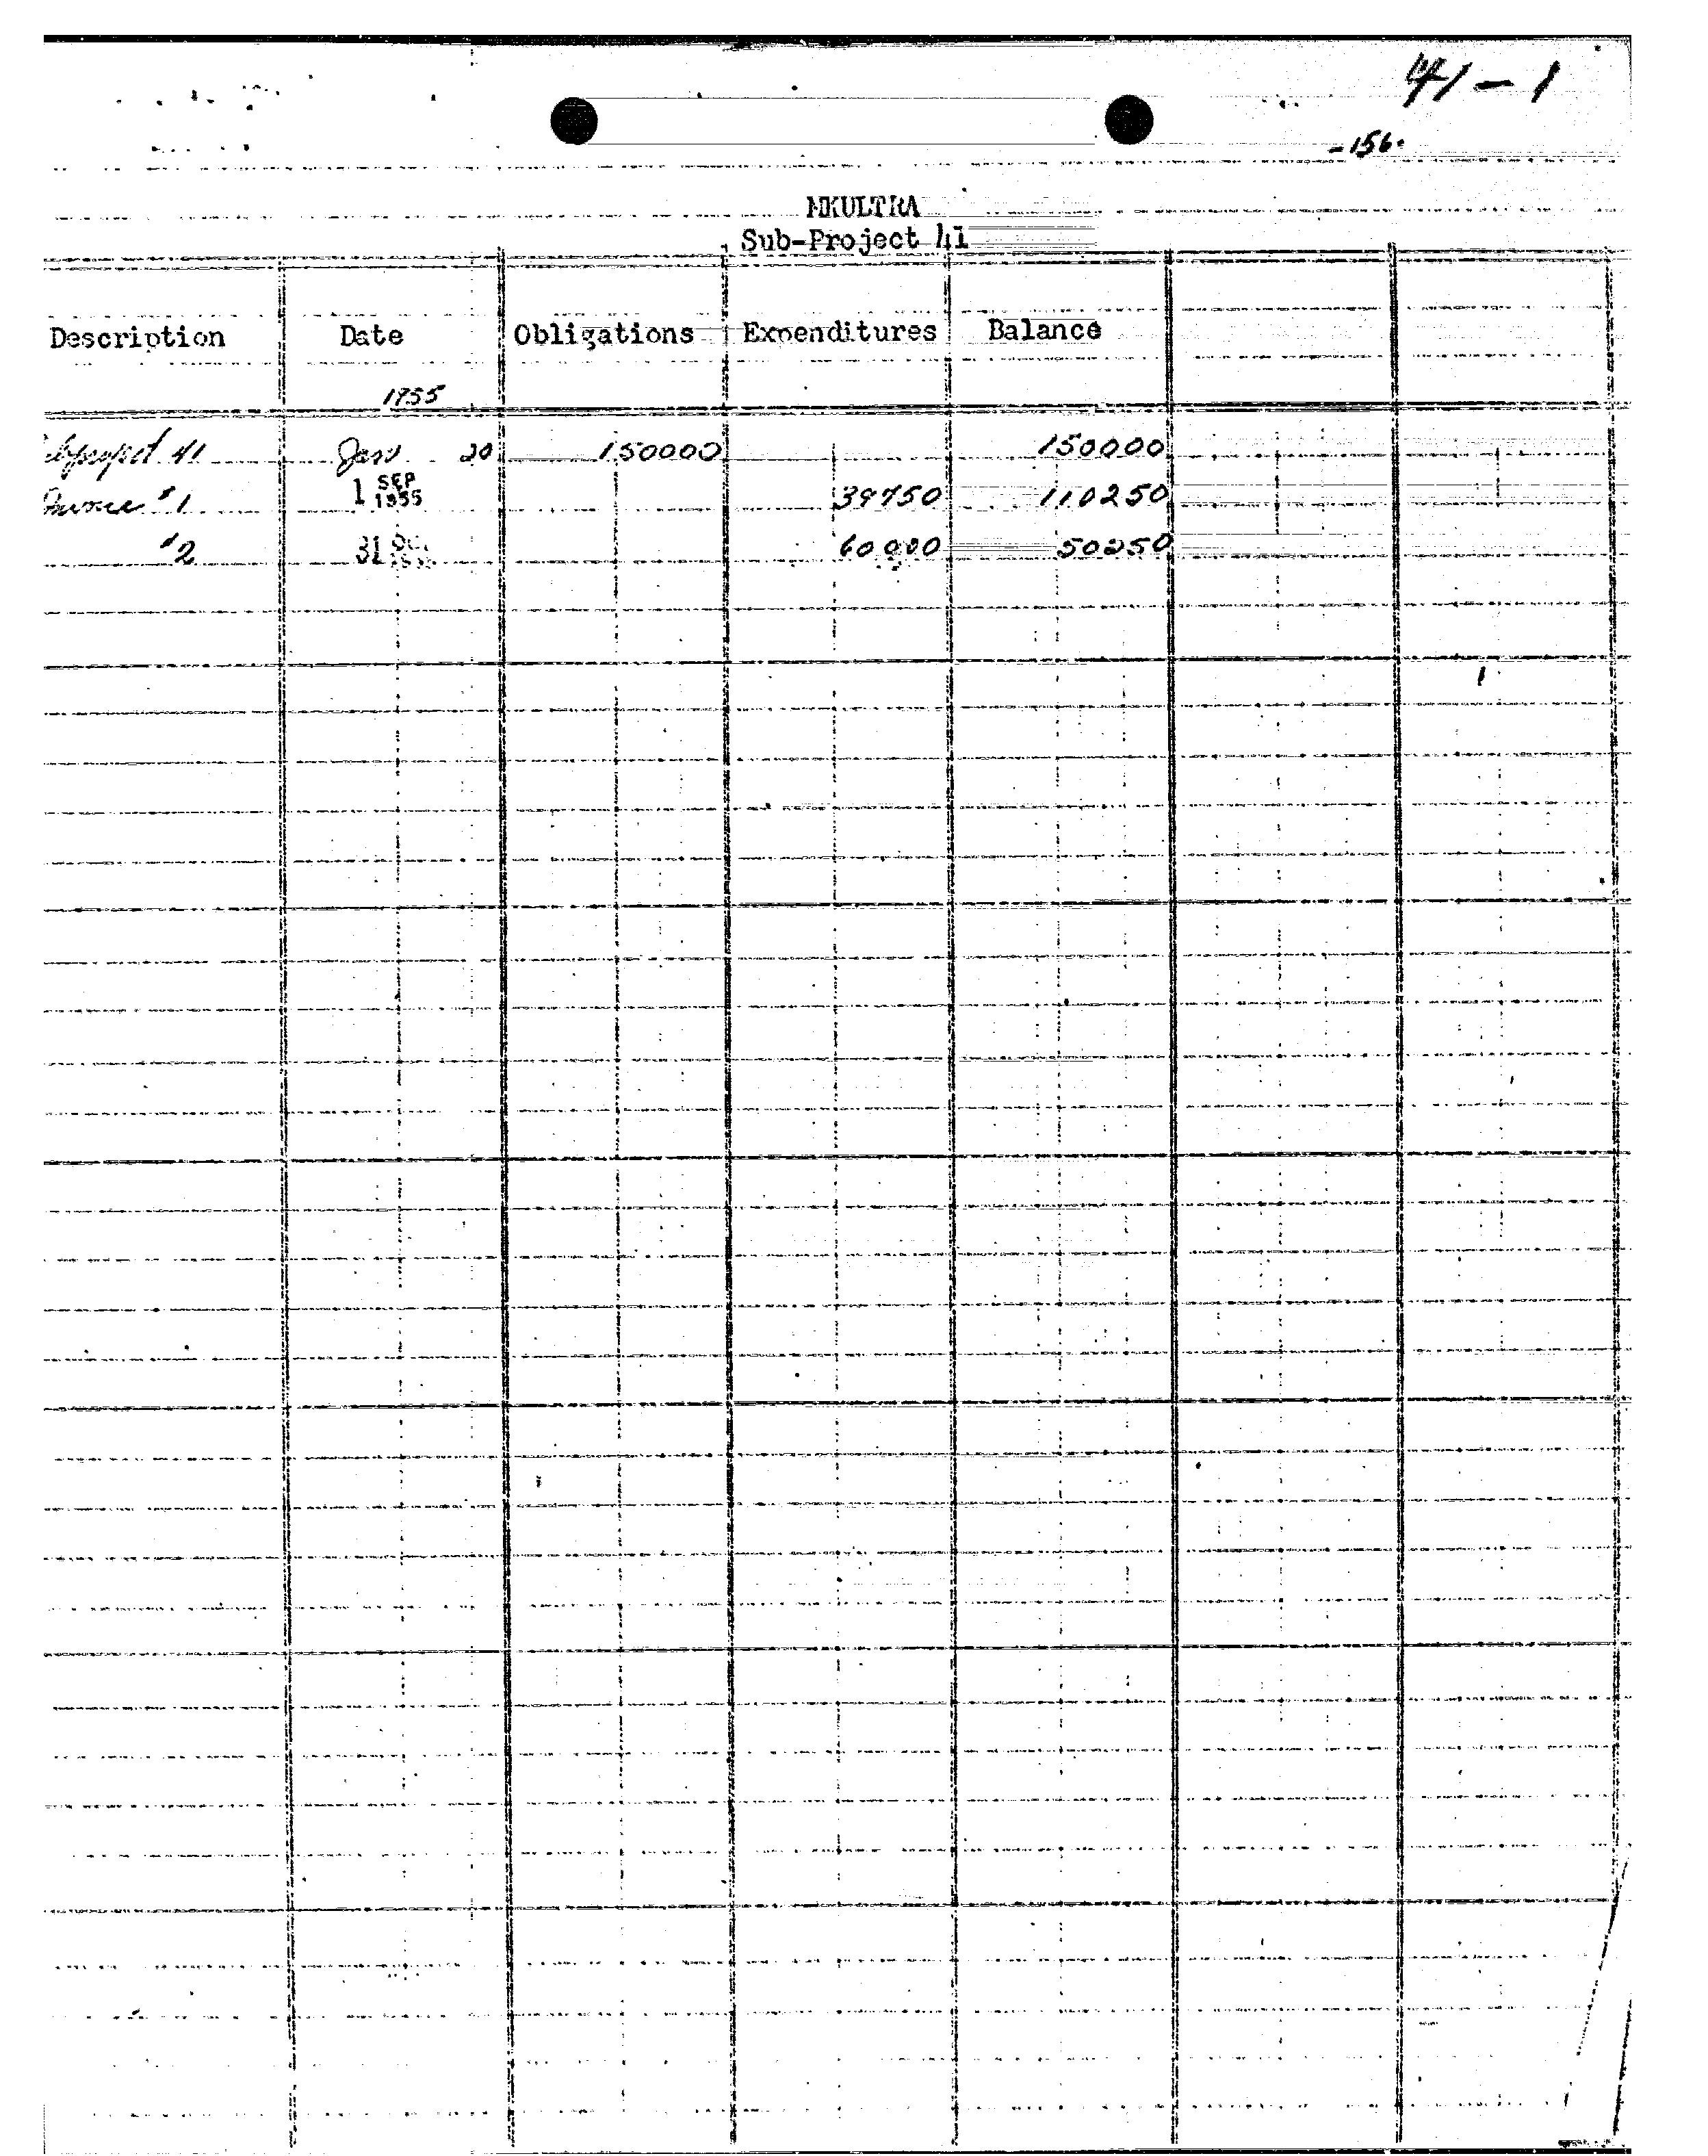 41-1
-156-
MKULTRA
Sub-Project 41
Description Date Obligations Expenditures Balance
1955
Subproject 41 Jan 20 150000 150000
Invoice #1 1 SEP 1955 39750 110250
#2 31 60000 50250